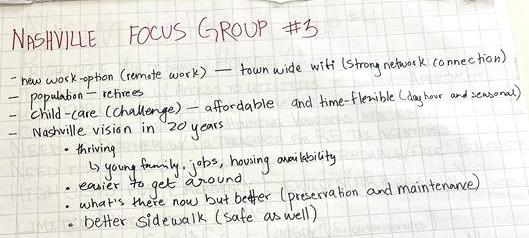 NASHVILLE FOCUS GROUP #3
- new work-option (remote work) — town wide wifi (strong network connection)
- population - retirees
- child-care (challenge) - affordable and time-flexible (day hour and seasonal)
- Nashville vision in 20 years
• thriving
↳ young family, jobs, housing availability
• easier to get around
• what's there now but better (preservation and maintenance)
• better sidewalk (safe as well)